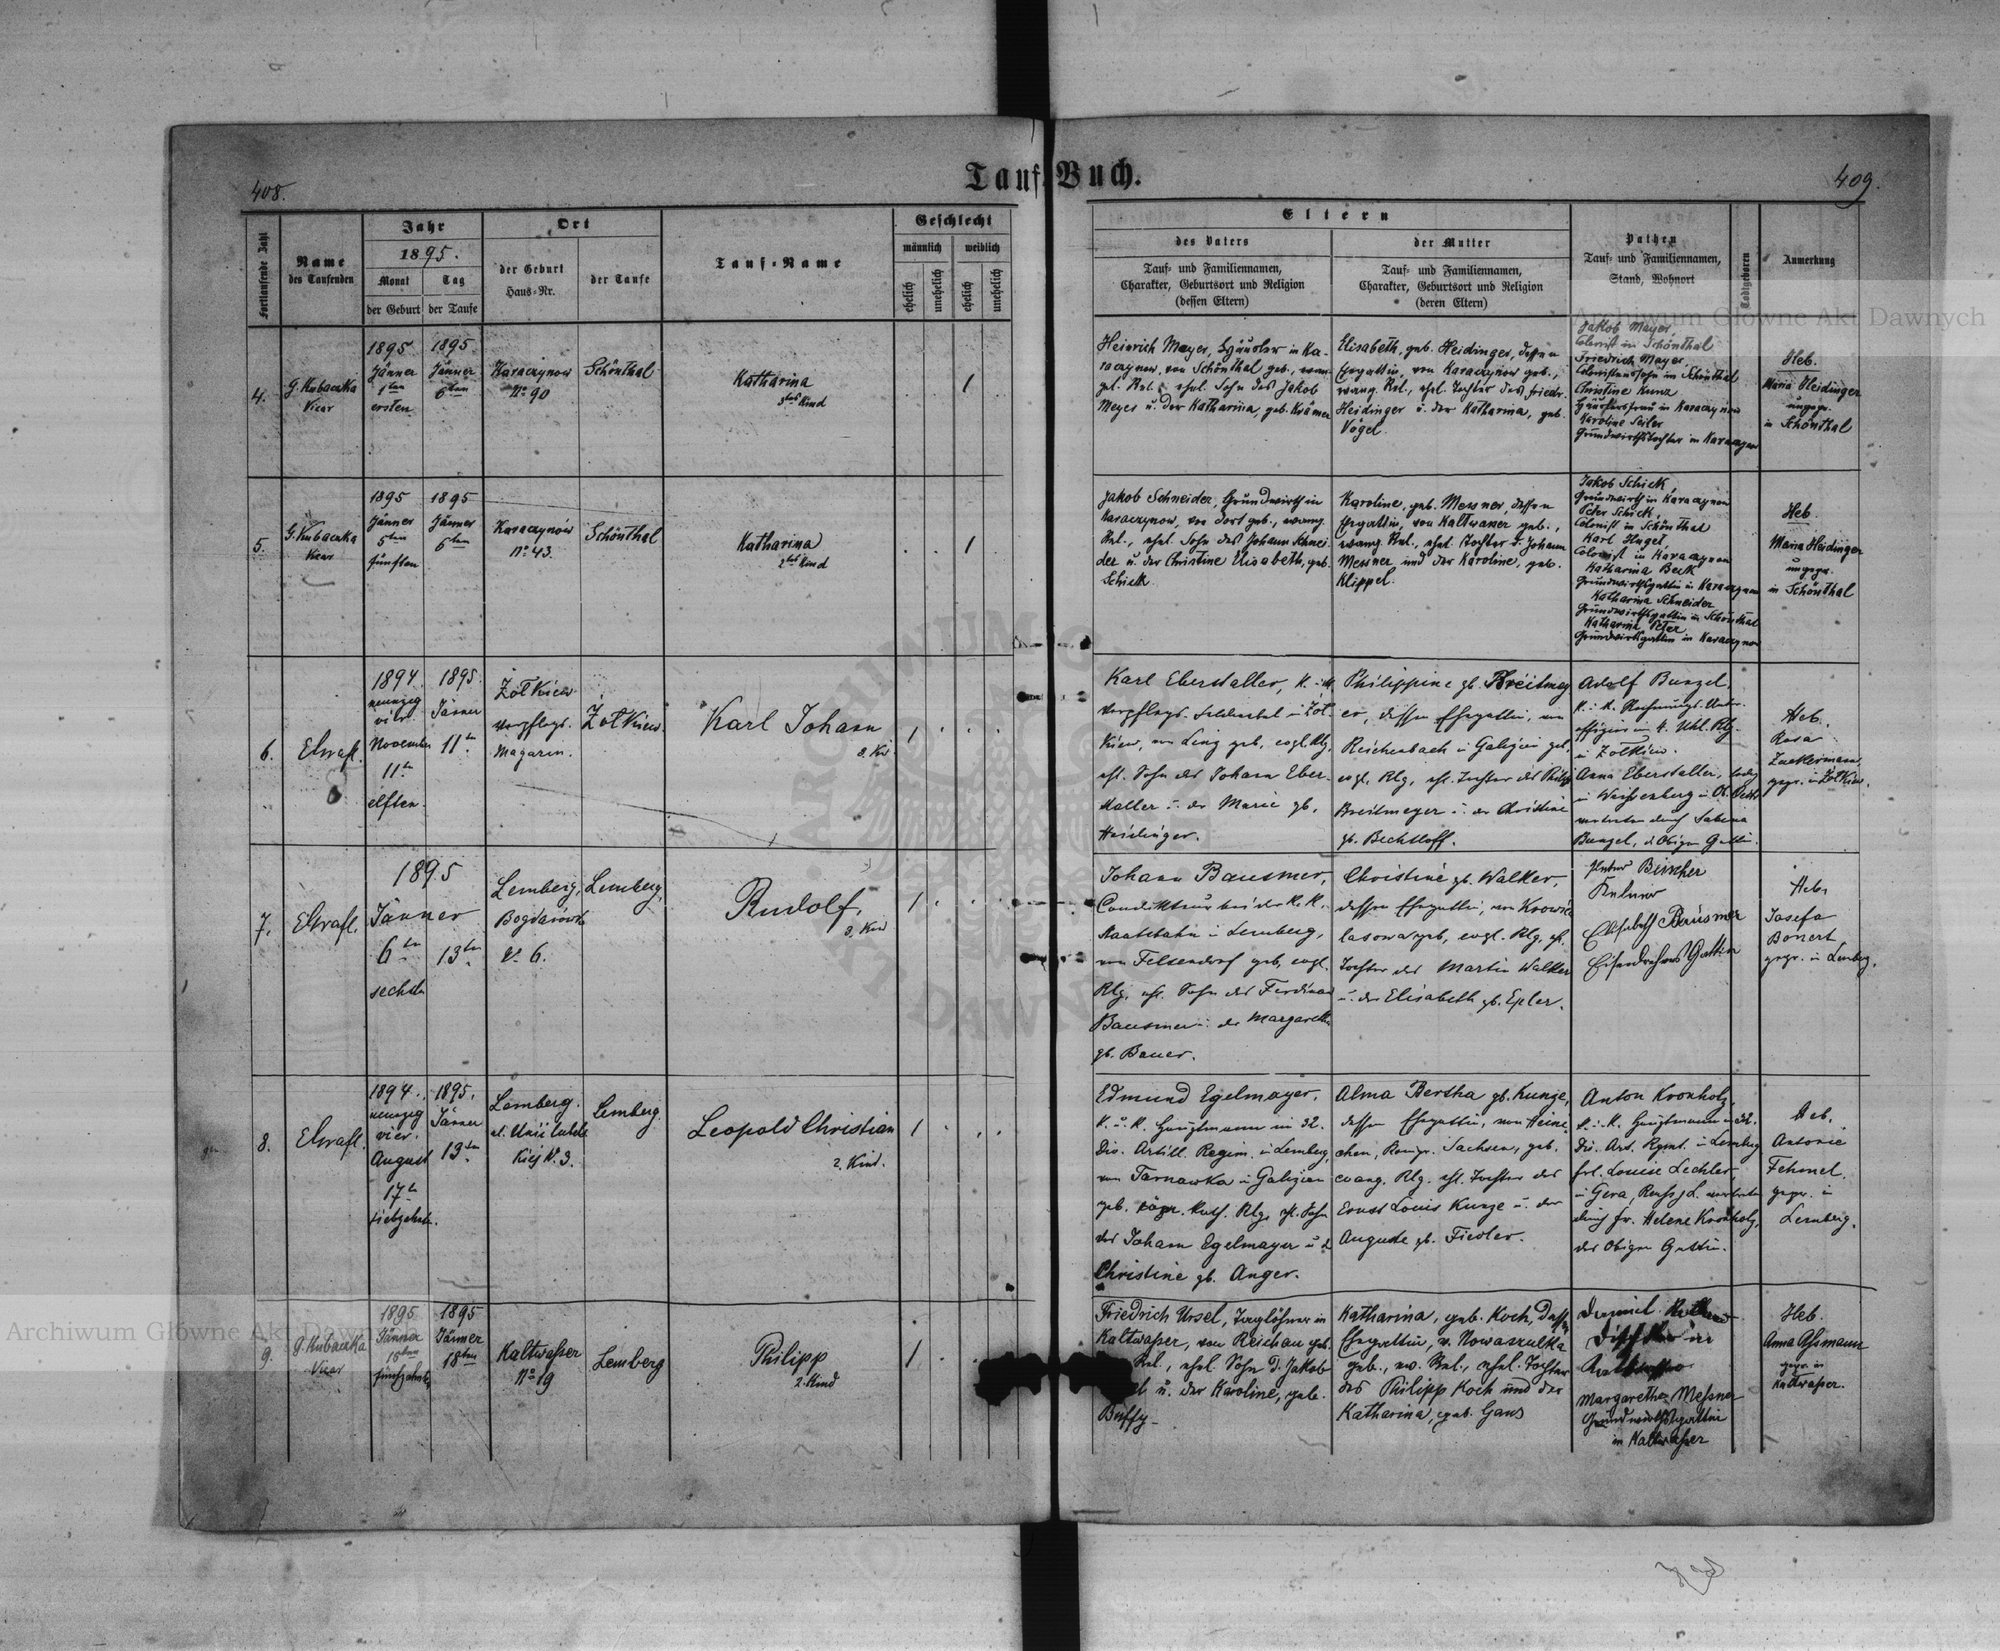 408.
Tauf-Buch.
409.
Fortlaufende Zahl
Name
des Taufenden
Jahr
1895.
Monat
der Geburt
Tag
der Taufe
Ort
der Geburt
Haus-Nr.
der Taufe
Tauf-Name
Geschlecht
männlich
weiblich
ehelich
unehelich
ehelich
unehelich
Eltern
des Vaters
Tauf- und Familiennamen,
Charakter, Geburtsort und Religion
(dessen Eltern)
der Mutter
Tauf- und Familiennamen,
Charakter, Geburtsort und Religion
(deren Eltern)
Pathen
Tauf- und Familiennamen,
Stand, Wohnort
Todtgeboren
Anmerkung
Archiwum Główne Akt Dawnych
4.
G. Kubaczka
Vicar
1895
Jänner
1ten
ersten
1895
Jänner
6ten
Karaczynow
No 90
Schönthal
Katharina
3tes Kind
1
Heinrich Mayer, Häusler in Ka-
raczynow, von Schönthal geb., evan-
gel. Rel., ehel. Sohn des Jakob
Meyer u. der Katharina, geb. Krämer
Elisabeth, geb. Heidinger, dessen
Ehegattin, von Karaczynow geb.,
evang. Rel., ehel. Tochter des Friedr.
Heidinger u. der Katharina, geb.
Vogel.
Jakob Mayer,
Colonist in Schönthal
Friedrich Mayer,
Colonistenssohn in Schönthal
Christine Kunz
Häuslersfrau in Karaczynow
Karoline Seiler
Grundwirthstochter in Karaczynow
Heb.
Maria Heidinger
ungepr.
in Schönthal
5.
G. Kubaczka
Vicar
1895
Jänner
5ten
fünften
1895
Jänner
6ten
Karaczynów
No 43.
Schönthal
Katharina
2tes Kind
1
Jakob Schneider, Grundwirth in
Karaczynow, von dort geb., evang.
Rel., ehel. Sohn des Johann Schnei-
der u. der Christine Elisabeth, geb.
Schick.
Karoline, geb. Messner, dessen
Ehegattin, von Kaltwasser geb.,
evang. Rel., ehel. Tochter d. Johann
Messner und der Karoline, geb.
Klippel.
Jakob Schick,
Grundwirth in Karaczynow
Peter Schick,
Colonist in Schönthal
Karl Hugel,
Colonist in Karaczynow
Katharina Beck
Grundwirthsgattin in Karaczynow
Katharina Schneider
Grundwirthsgattin in Schönthal
Katharina Peter
Grundwirthsgattin in Karaczynow
Heb.
Maria Heidinger
ungepr.
in Schönthal
6.
1894.
neunzig
vier.
November
11tn
elften.
1895.
Jänner
11tn
Żołkiew
Verpflegs.
Magazin.
Żołkiew.
Karl Johann
3. Kind
1
Karl Eberstaller, k. u. k.
Verpflegs- in Żoł-
kiew, von Linz geb., evgl. Rlg.
ehl. Sohn des Johann Eber-
staller u. der Marie gb.
Heidinger.
Philippine gb. Breitmey
er, dessen Ehegattin, von
Reichenbach in Galizien geb.,
evgl. Rlg., ehl. Tochter des Philipp
Breitmeyer u. der Christine
gb. Bechtloff.
Adolf Bunzel,
k. u. k. Rechnungs-Unter-
offizier im 4. Uhl. Rlg.
in Żołkiew.
Anna Eberstaller, ledig
in Weissenberg in Ob. Oestr.
vertreten durch Sabina
Bunzel, d. Obigen Gattin.
Heb.
Rosa
Zuckermann,
gepr. in Żołkiew.
7.
1895
Jänner
6tn
sechsten
13tn
Lemberg,
N. 6.
Lemberg,
Rudolf,
3. Kind
1
Johann Bausmer,
Condukteur bei der k. k.
Staatsbahn in Lemberg,
von Felsendorf geb., evgl.
Rlg., ehl. Sohn des Ferdinand
Bausmer u. der Margarethe
gb. Bauer.
Christine gb. Walker,
dessen Ehegattin, von Krowica
lasowa geb., evgl. Rlg. ehl.
Tochter des Martin Walker
u. der Elisabeth gb. Epler.
Elisabeth Bausmer
Eisendrehers Gattin
Heb.
Josefa
Bonert
gepr. in Lemberg.
8.
1894.
neunzig
vier.
August
17tn
siebzehnten.
1895.
Jänner
13tn
Lemberg.
Lemberg.
Leopold Christian
2. Kind.
1
Edmund Egelmayer,
k. u. k. Hauptmann im 32.
Div. Artill. Regim. in Lemberg,
von Tarnawka in Galizien
geb. röm. kath. Rlg. ehl. Sohn
des Johann Egelmayer u. d.
Christine gb. Anger.
Alma Bertha gb. Kunze,
dessen Ehegattin, von Heini-
chen, Königr. Sachsen, geb.
evang. Rlg. ehl. Tochter des
Ernst Louis Kunze u. der
Auguste gb. Fiedler.
Anton Kronholz,
k. u. k. Hauptmann im 32.
Div. Art. Rgmt. in Lemberg
Frl. Louise Lechler,
in Gera, Reuss j. L. vertreten
durch Fr. Helene Kronholz,
des Obigen Gattin.
Heb.
Antonie
Fehmel
gepr. in
Lemberg.
9.
G. Kubaczka
Vicar
1895
Jänner
15ten
fünfzehnten
1895
Jänner
18ten
Kaltwasser
No 19
Lemberg
Philipp
2. Kind
1
Friedrich Ursel, Taglöhner in
Kaltwasser, von Reichau geb.
Rel., ehel. Sohn d. Jakob
u. der Karoline, geb.
Buffy
Katharina, geb. Koch, dessen
Ehegattin, v. Nowaszulka
geb., ev. Rel., ehel. Tochter
des Philipp Koch und der
Katharina, geb. Gans
Margarethe Messner
Grundwirthsgattin
in Kaltwasser
Heb.
Anna Assmann
gepr. in
Kaltwasser.
Archiwum Główne Akt Dawnych